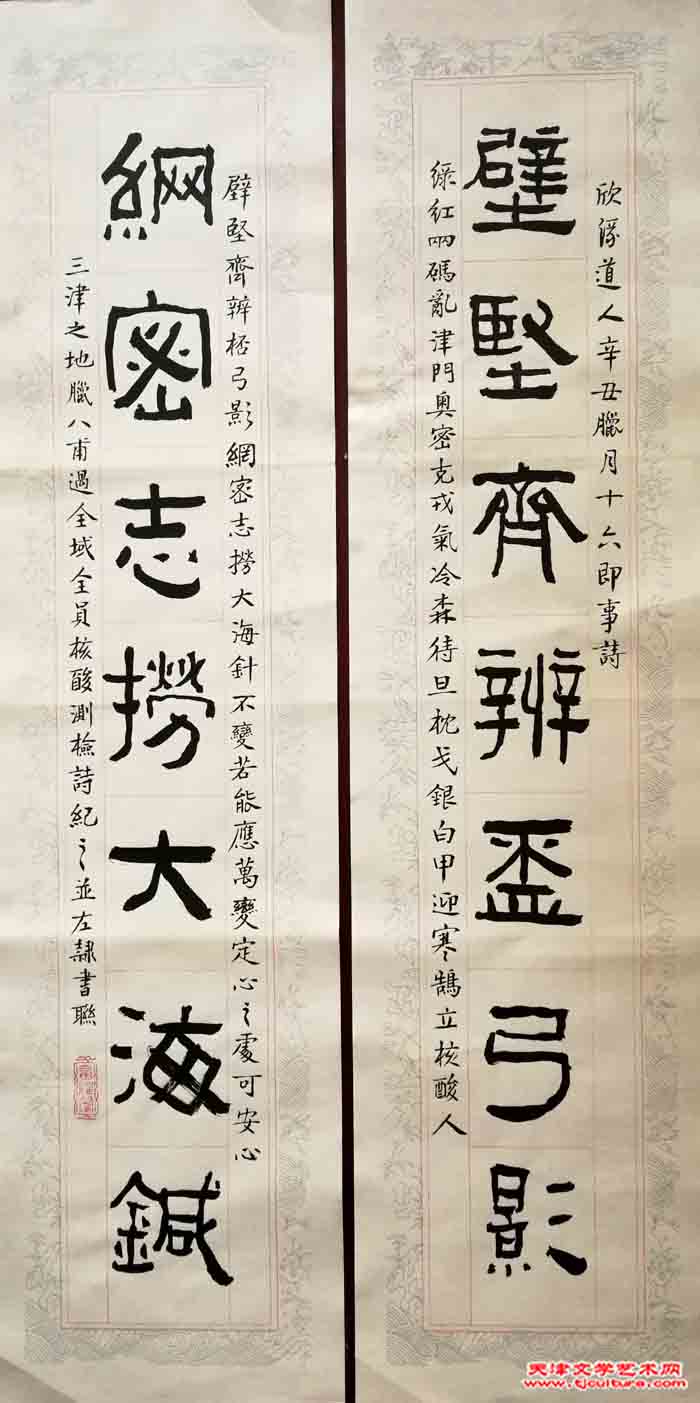 欣隊道人辛丑臘月十六即事詩
壁堅齊辨盃弓影
綠紅兩碼亂津門奧密克戎氣冷森待旦枕戈銀白甲迎寒鵠立核酸人
壁堅齊辨桮弓影網密志撈大海針不變若能應萬變定心之處可安心
網密志撈大海鍼
三津之地臘八甫過全域全員核酸測檢詩紀之並左隸書聯
天津文学艺术网
www.tjcultura.com